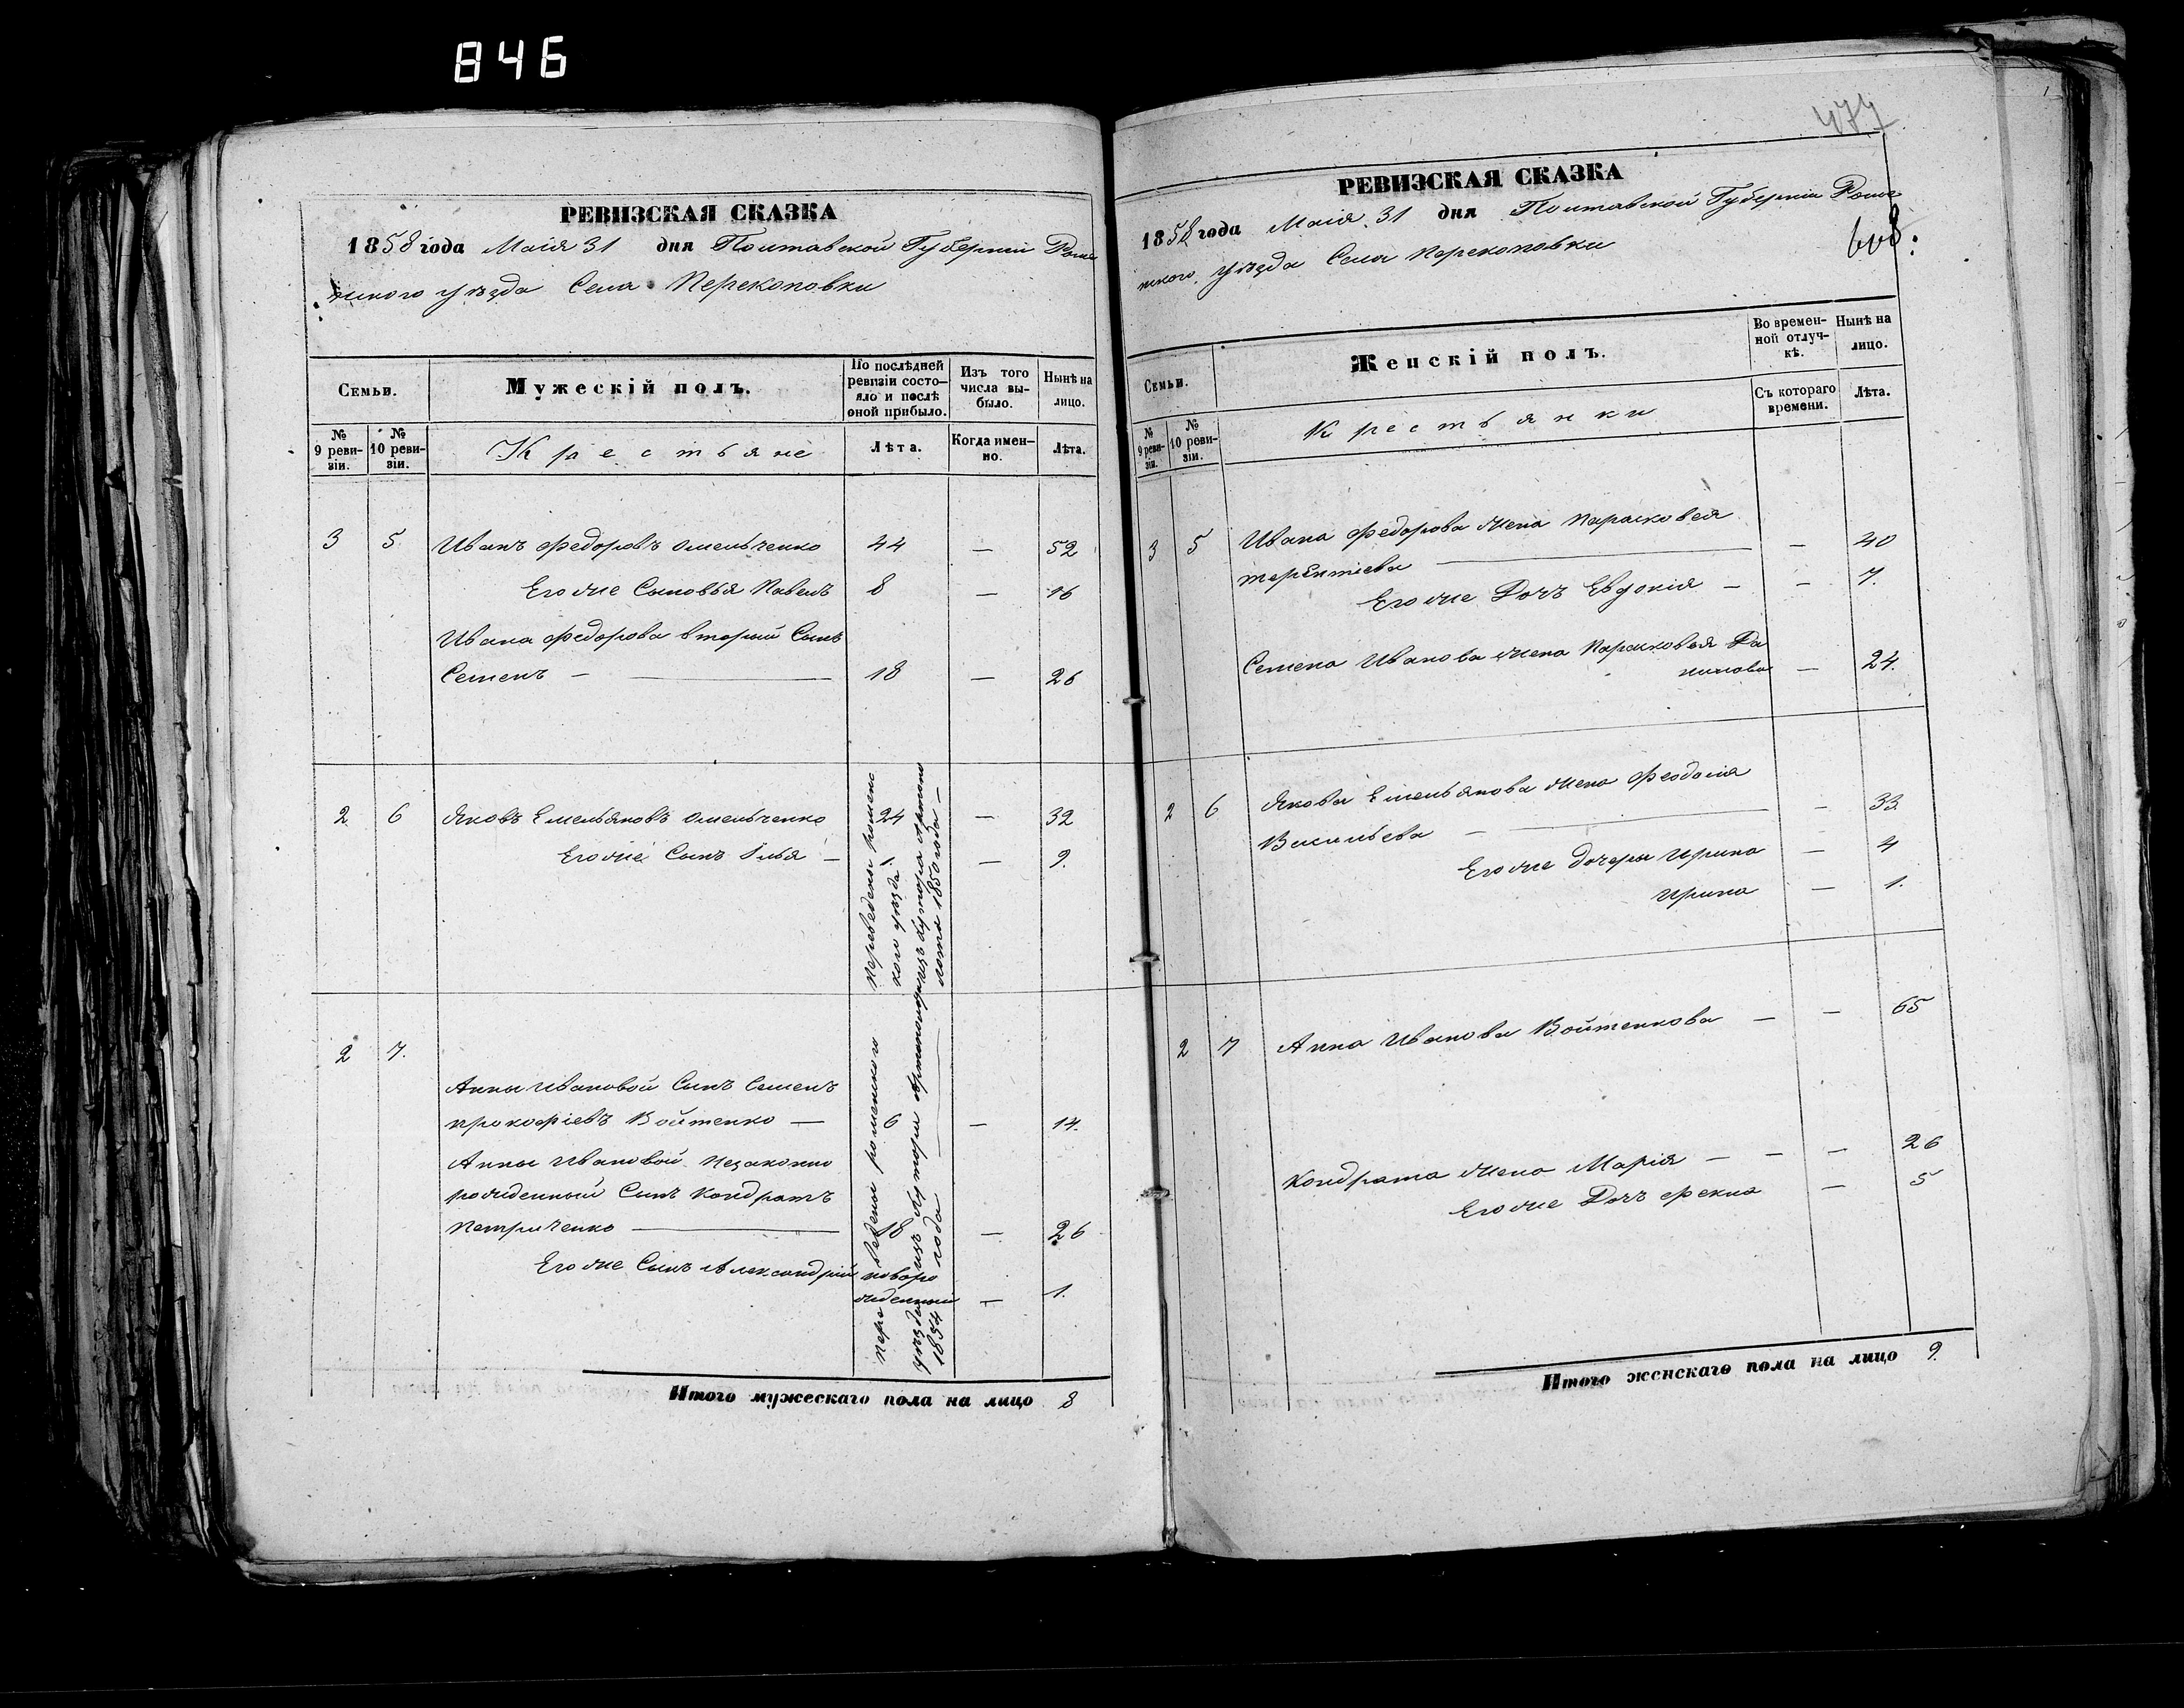 846
РЕВИЗСКАЯ СКАЗКА
1858 года Маія 31 дня Полтавской Губерніи Роме
нского уѣзда Села Перекоповки
Семьи.
Мужескій полъ.
По послѣдней
ревизіи состо-
яло и послѣ
оной прибыло.
Изъ того
числа вы-
было.
Нынѣ на
лицо.
№
9 реви-
зіи.
№
10 реви-
зіи.
Крестьяне
Лѣта.
Когда имен-
но.
Лѣта.
3 5 Иванъ Федоровъ Омельченко 44 — 52
Его же Сыновья Павелъ 8 — 16
Ивана Федорова вторый Сынъ
Семенъ — 18 — 26
2 6 Яковъ Емельяновъ Омельченко 24 — 32
Его же Сынъ Илья — 1. — 9.
переведены Роменс
кого уѣзда
изъ хутора
1850 года —
2 7.
Анны Ивановой Сынъ Семенъ
прокофіевъ Войтенко — 6 — 14.
Анны Ивановой незаконно
рожденный Сынъ Кондратъ
Петриченко — 18 — 26
Его же Сынъ Александрій новоро
жденный — 1.
переведены роменского
уѣзда изъ хутора
1854 года
Итого мужескаго пола на лицо 8
477
РЕВИЗСКАЯ СКАЗКА
1858 года Маія 31 дня Полтавской Губерніи Роме
нского уѣзда Села Перекоповки
608.
Семьи.
Женскій полъ.
Во времен-
ной отлуч-
кѣ.
Нынѣ на
лицо.
№
9 реви-
зіи.
№
10 реви-
зіи.
Крестьянки
Съ котораго
времени.
Лѣта.
3 5 Ивана Федорова жена Парасковея
терентіева — — 40
Его же Дочъ Евдокія — — 7.
Семена Иванова жена Парасковея Да
нилова — 24.
2 6 Якова Емельянова жена Феодосія
Васильева — — 33
Его же дочеры Ирина — 4
Ирина — 1.
2 7 Анна Иванова Войтенкова — — 65
Кондрата жена Марія — — — 26
Его же Дочъ Фекла — 5
Итого женскаго пола на лицо 9.